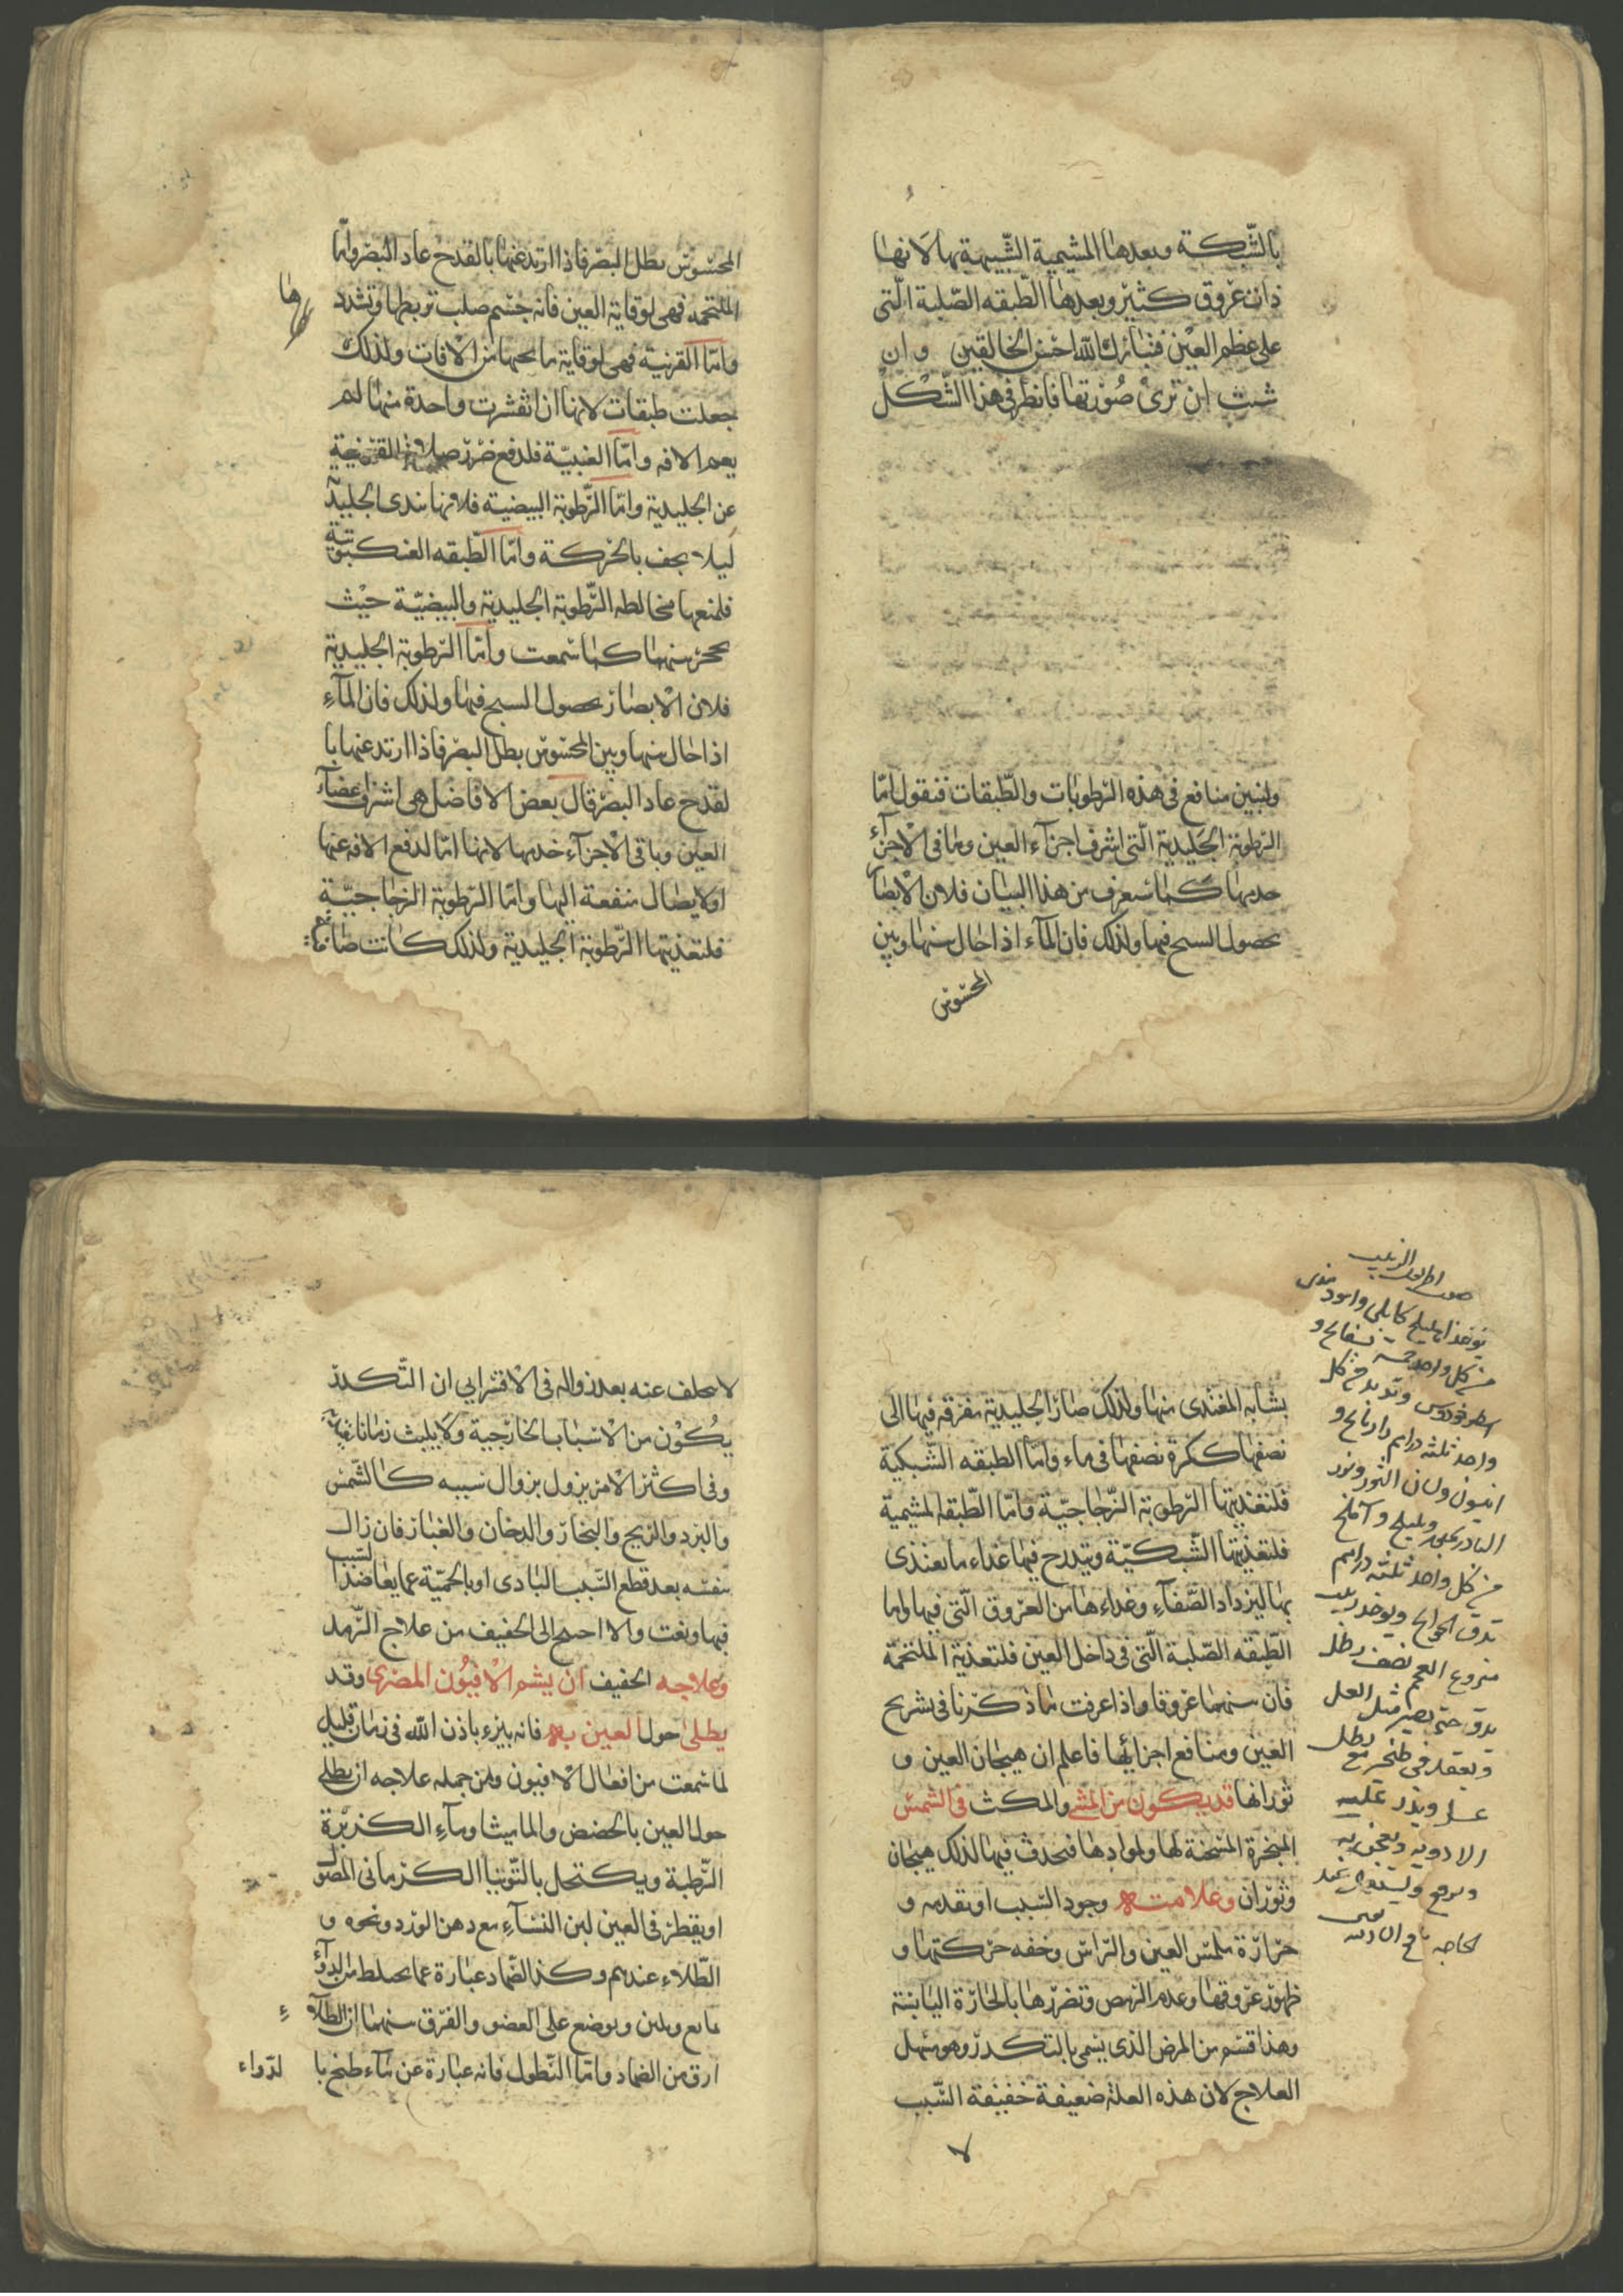 بالشّبكة وبعدها المشيمية الشّبيهة بها لانها
ذات عروق كثير وبعدها الطّبقه الصّلبة الّتى
على عظم العين فتبارك الله احسن الخالقين وان
شئت ان ترى صورتها فانظر فى هذا الشّكل
ولنبين منافع فى هذه الرّطوبات والطّبقات فنقول امّا
الرّطوبة الجليدية الّتى اشرف اجزآء العين وما فى الاجزآء
خدمها كما ستعرف من هذا البيان فلان الابصار
بحصول السبح فيها ولذلك فان المآء اذا حال بينها وبين
المحسوس
المحسوس بطل البصر فاذا ارتد عنها بالقدح عاد البصر وامّا
الملتحمه فهى لوقاية العين فانه جسم صلب تربطها وتشدد
ها
وامّا القرنية فهى لوقاية ما تحتها من الافات ولذلك
جعلت طبقات لانها ان تقشرت واحدة منها لم
يعم الافه وامّا العنبيّة فلدفع ضرر صلابة القرنية
عن الجليدية وامّا الرّطوبة البيضية فلانها تندى الجليدية
ليلا يجف بالحركة وامّا الطّبقه العنكبوتية
فلمنعها مخالطه الرّطوبة الجليدية والبيضيّة حيث
تحجز بينهما كما سمعت وامّا الرّطوبة الجليدية
فلان الابصار بحصول السبح فيها ولذلك فان المآء
اذا حال بينها وبين المحسوس بطل البصر فاذا ارتد عنها با
لقدح عاد البصر قال بعض الافاضل هى اشراف اعضآء
العين وباقى الاجزآء خدمها لانها امّا لدفع الافه عنها
او لايصال منفعة اليها وامّا الرّطوبة الزجاجيّة
فلتغذيتها الرّطوبة الجليدية ولذلك كانت
بشابه المغتذى منها ولذلك صار الجليدية مفرقه فيها الى
نصفها ككرة نصفها فى ماء وامّا الطبقه الشّبكية
فلتغذيتها الرّطوبة الزّجاجيّة وامّا الطّبقه المشيمية
فلتغذيتها الشّبكيّة ويتدرج فيها غذاء ما يغتذى
بها ليزداد الصّفآء وغذاءها من العروق الّتى فيها وامّا
الطّبقه الصّلبة الّتى فى داخل العين فلتغذية الملتحمة
فان بينهما عروقا واذا عرفت ما ذكرنا فى تشريح
العين ومنافع اجزائها فاعلم ان هيجان العين و
ثورانها قد يكون من المشى والمكث فى الشمس
المبخرة المسخنة لها ولموادها فيحدث فيها لذلك هيجان
وثوران وعلامته وجود السّبب او تقدمه و
حرارة ملمس العين والرّاس وخفه حركتها و
ظهور عروقها وعدم الرّمص وتضررها بالحارّة اليابسة
وهذا قسم من المرض الّذى يسمى بالتكدر وهو سهل
العلاج لان هذه العلة ضعيفة خفيفة السّبب
لا
يوخذ اهليلج كابلى واسود هندى
من كل واحد خمسه
اسطوخودوس وتربد من كل
واحد ثلثه دراهم
انيسون ولسان الثور
وبليلج وآملج
من كل واحد ثلثه دراهم
تدق الحوائج ويوخذ زبيب
منزوع العجم نصف رطل
يدق حتى يصير مثل العسل
ويعقد فى طنجير مع رطل
عسل ويذر عليه
الادويه ويعجن به
ويرفع ويستعمل عند
الحاجه نافع ان شاء الله
لا يتخلف عنه بعد زواله فى الاقشرابى ان التّكدر
يكون من الاسباب الخارجية ولا يلبث زمانا
وفى اكثر الامر يزول بزوال سببه كالشمس
والبرد والريح والبخار والدخان والغبار فان زال
بنفسه بعد قطع السّبب البادى او بالحميّة عما يعاضد السّبب
فبها ونعت والا احتيج الى الخفيف من علاج الرّمد
وعلاجه الخفيف ان يشم الافيون المصرى وقد
يطلى حول العين به فانه يبرء باذن الله فى زمان قليل
لما سمعت من افعال الافيون ومن جمله علاجه ان يطلى
حول العين بالحضض والماميثا ومآء الكزبرة
الرّطبة ويكتحل بالتّوتيا الكرمانى المصول
او يقطر فى العين لبن النسآء مع دهن الورد ونحوه و
الطّلاء عندهم وكذا الضّماد عبارة عما يخلط من الدوآء
مايع وملين ويوضع على العضو والفرق بينهما ان الطلآء
ارق من الضماد وامّا النّطول فانه عبارة عن مآء طبخ با لدّواء